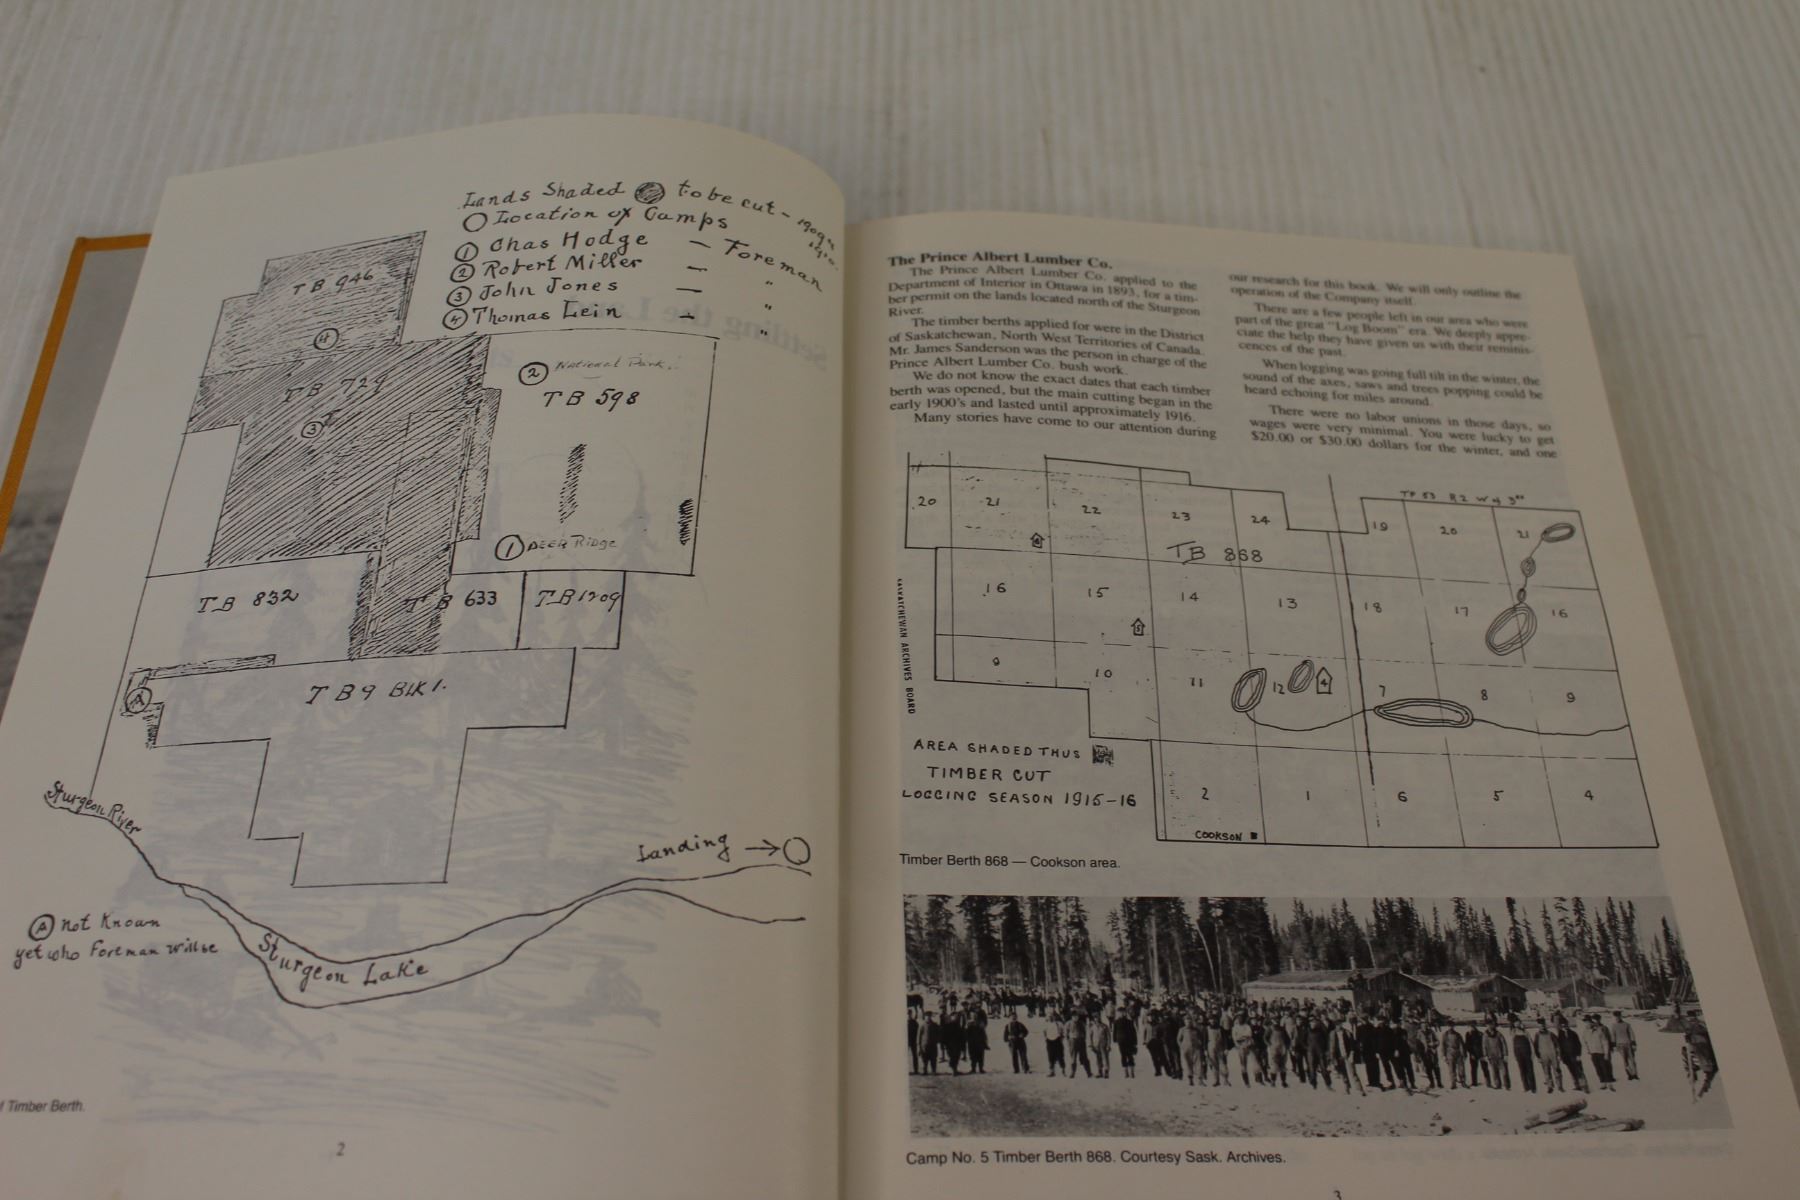 Lands Shaded to be cut - 1909 & 1910.
Location of Camps
1 Chas Hodge — Foreman
2 Robert Miller — "
3 John Jones — "
4 Thomas Lein - "
TB 946
4
TB 729
3
2 National Park.
TB 598
1 DEER Ridge
TB 832
TB 633
TB 1209
A
TB 9 Blk 1.
Sturgeon River
Landing → 
A not Known
yet who Foreman will be
Sturgeon Lake
f Timber Berth.
2
The Prince Albert Lumber Co.
The Prince Albert Lumber Co. applied to the
Department of Interior in Ottawa in 1893, for a tim-
ber permit on the lands located north of the Sturgeon
River.
The timber berths applied for were in the District
of Saskatchewan, North West Territories of Canada.
Mr. James Sanderson was the person in charge of the
Prince Albert Lumber Co. bush work.
We do not know the exact dates that each timber
berth was opened, but the main cutting began in the
early 1900's and lasted until approximately 1916.
Many stories have come to our attention during
our research for this book. We will only outline the
operation of the Company itself.
There are a few people left in our area who were
part of the great "Log Boom" era. We deeply appre-
ciate the help they have given us with their reminis-
cences of the past.
When logging was going full tilt in the winter, the
sound of the axes, saws and trees popping could be
heard echoing for miles around.
There were no labor unions in those days, so
wages were very minimal. You were lucky to get
$20.00 or $30.00 dollars for the winter, and one
TP 53 R 2 W of 3rd
20 21 22 23 24 19 20 21
TB 868
16 15 14 13 18 17 16
5
9 10 11 12 4 7 8 9
2 1 6 5 4
COOKSON
SASKATCHEWAN ARCHIVES BOARD
AREA SHADED THUS
TIMBER CUT
LOGGING SEASON 1915-16
Timber Berth 868 — Cookson area.
Camp No. 5 Timber Berth 868. Courtesy Sask. Archives.
3